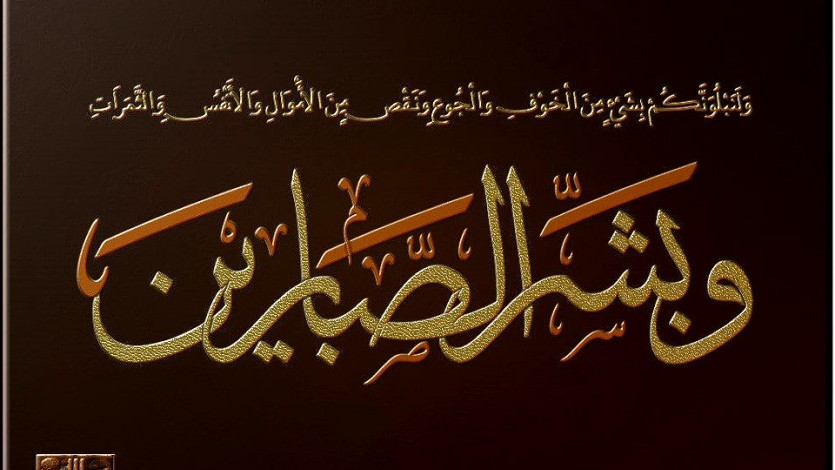 وَلَنَبْلُوَنَّكُمْ بِشَيْءٍ مِنَ الْخَوْفِ وَالْجُوعِ وَنَقْصٍ مِنَ الْأَمْوَالِ وَالْأَنْفُسِ وَالثَّمَرَاتِ
وبشّر الصّابرين